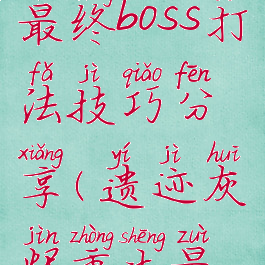 最终boss打
fǎ jì qiǎo fēn
法技巧分
xiǎng yí jì huī
享(遗迹灰
jìn zhòng shēng zuì
烬重生最